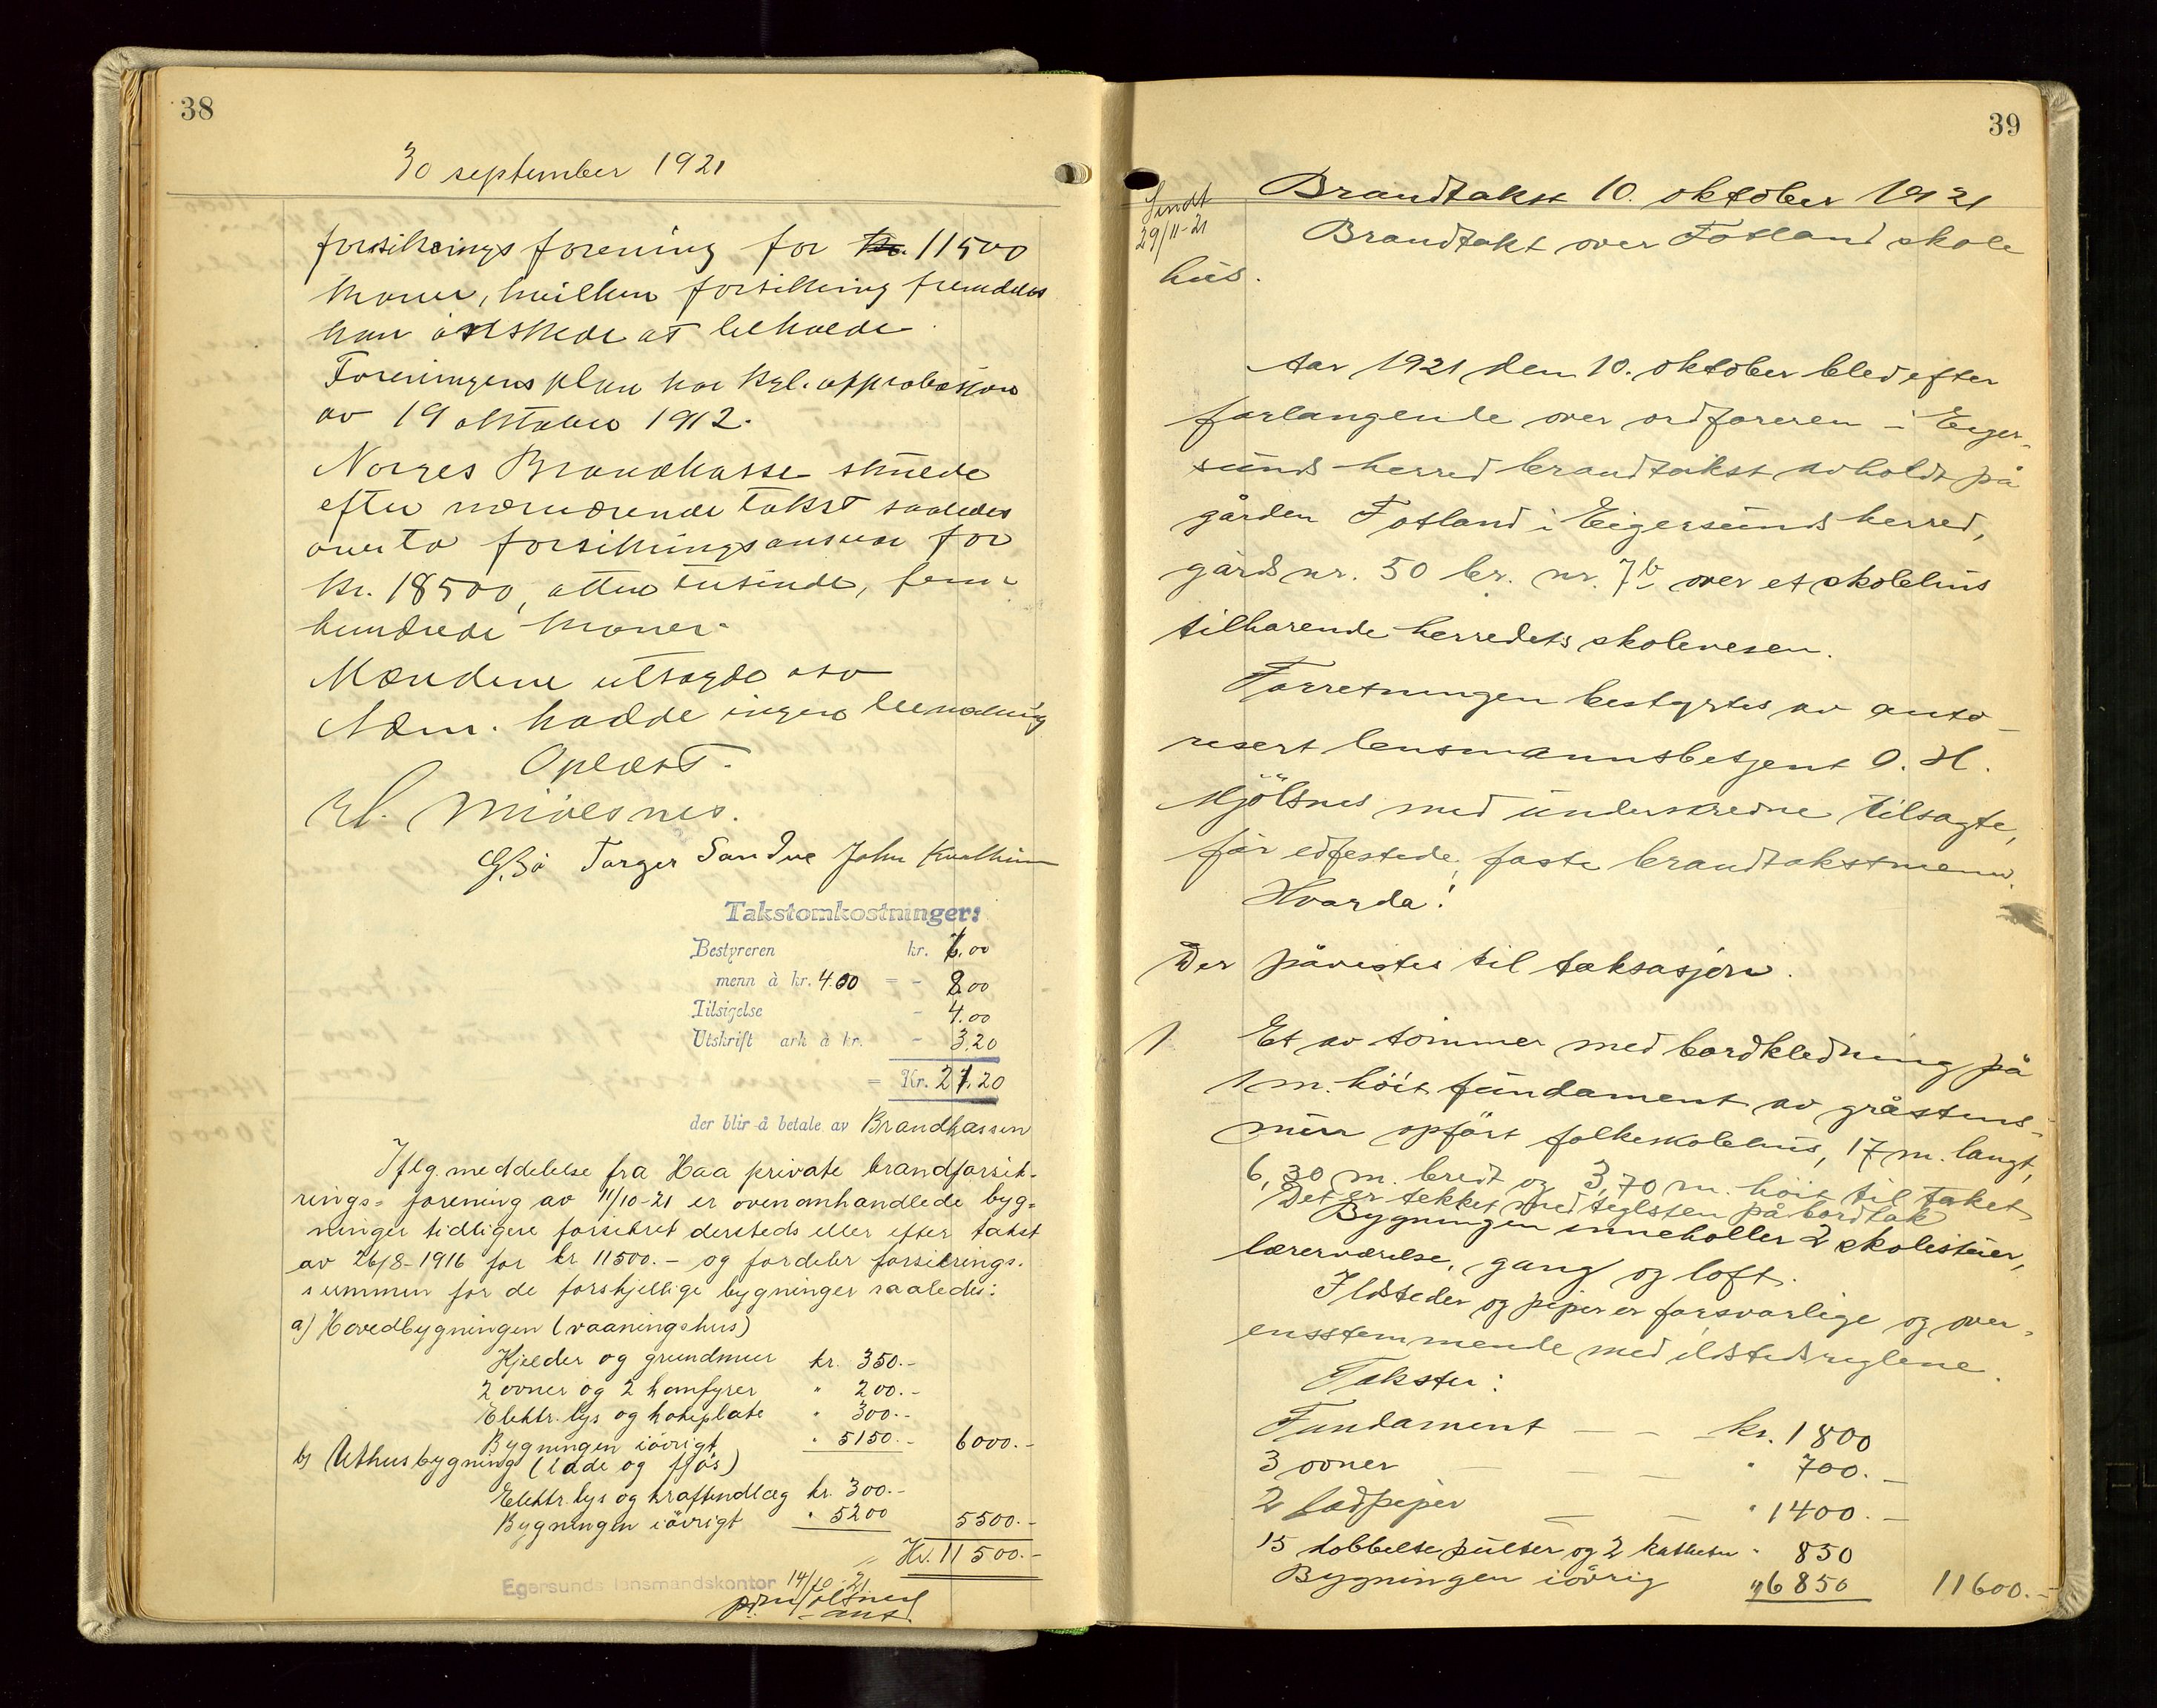 38
30 september 1921
forsikringsforening for 11500
kroner, hvilken forsikring fremdeles
han ønskede at beholde.
Foreningens plan har kgl. approbasjon
av 19 oktober 1912.
Norges Brandkasse skulde
efter nærværende takst saaledes
overta forsikringsansvar for
Kr. 18500, atten tusinde, fem
hundrede kroner.
Mændene utsagde
hadde ingen bemerkning
Oplæst.
G. Bø Torger Sandve John Kvalheim
Takstomkostninger:
Bestyreren kr. 6.00
menn à kr. 4.00 = - 8.00
Tilsigelse - 4.00
Utskrift ark à kr. - 3.20
= Kr. 21.20
der blir å betale av Brandkassen
Iflg. meddelelse fra Haa private brandforsik-
rings- forening av 11/10-21 er ovenomhandlede byg-
ninger tidligere forsikret dersteds eller efter takst
av 26/8-1916 for kr 11500.- og fordeler forsikrings-
summen for de forskjellige bygninger saaledes:
a) Hovedbygningen (vaaningshus)
Kjelder og grundmur kr. 350.-
2 ovner og 2 komfyrer " 200.-
Elektr. lys og kokeplate " 300.-
Bygningen iövrigt " 5150.- 6000.-
b) Uthusbygning (lade og fjøs)
Elektr. lys og kraftindlæg kr. 300.-
Bygningen iövrigt " 5200 5500.-
Kr. 11500.-
Egersunds lensmandskontor 14/10-21
39
Sendt
29/11-21
Brandtakst 10. oktober 1921
Brandtakt over Fotland skole
hus.
Aar 1921 den 10. oktober blev efter
forlangende over ordföreren i Eiger-
sunds herred brandtakst avholdt på
gården Fotland i Eigersunds herred,
gårds nr. 50 br. nr. 7b over et skolehus
tilhørende herredets skolevesen.
Forretningen bestyrtes av auto-
risert lensmannsbetjent O. H.
Mjölsnes med underskrevne tilsagte,
för edfestede, faste brandtakstmenn.
Hvorda!
Der påvistes til taksasjon.
1 Et av tömmer med bordkledning på
1 m. höit fundament av gråstens-
mur opfört folkeskolehus, 17 m. langt,
6,30 m. bredt og 3,70 m. höit til taket
Det er tekket med teglsten på bordtak
Bygningen inneholler 2 skolestuer,
lærerværelse, gang og loft.
Ildsteder og piper er forsvarlige og over-
ensstemmende med ildstedsreglene.
Takster:
Fundament kr. 1800
3 ovner " 700.-
2 " 1400.-
15 dobbelte pulter og 2 kateter " 850
Bygningen iövrig " 6850 11600.-